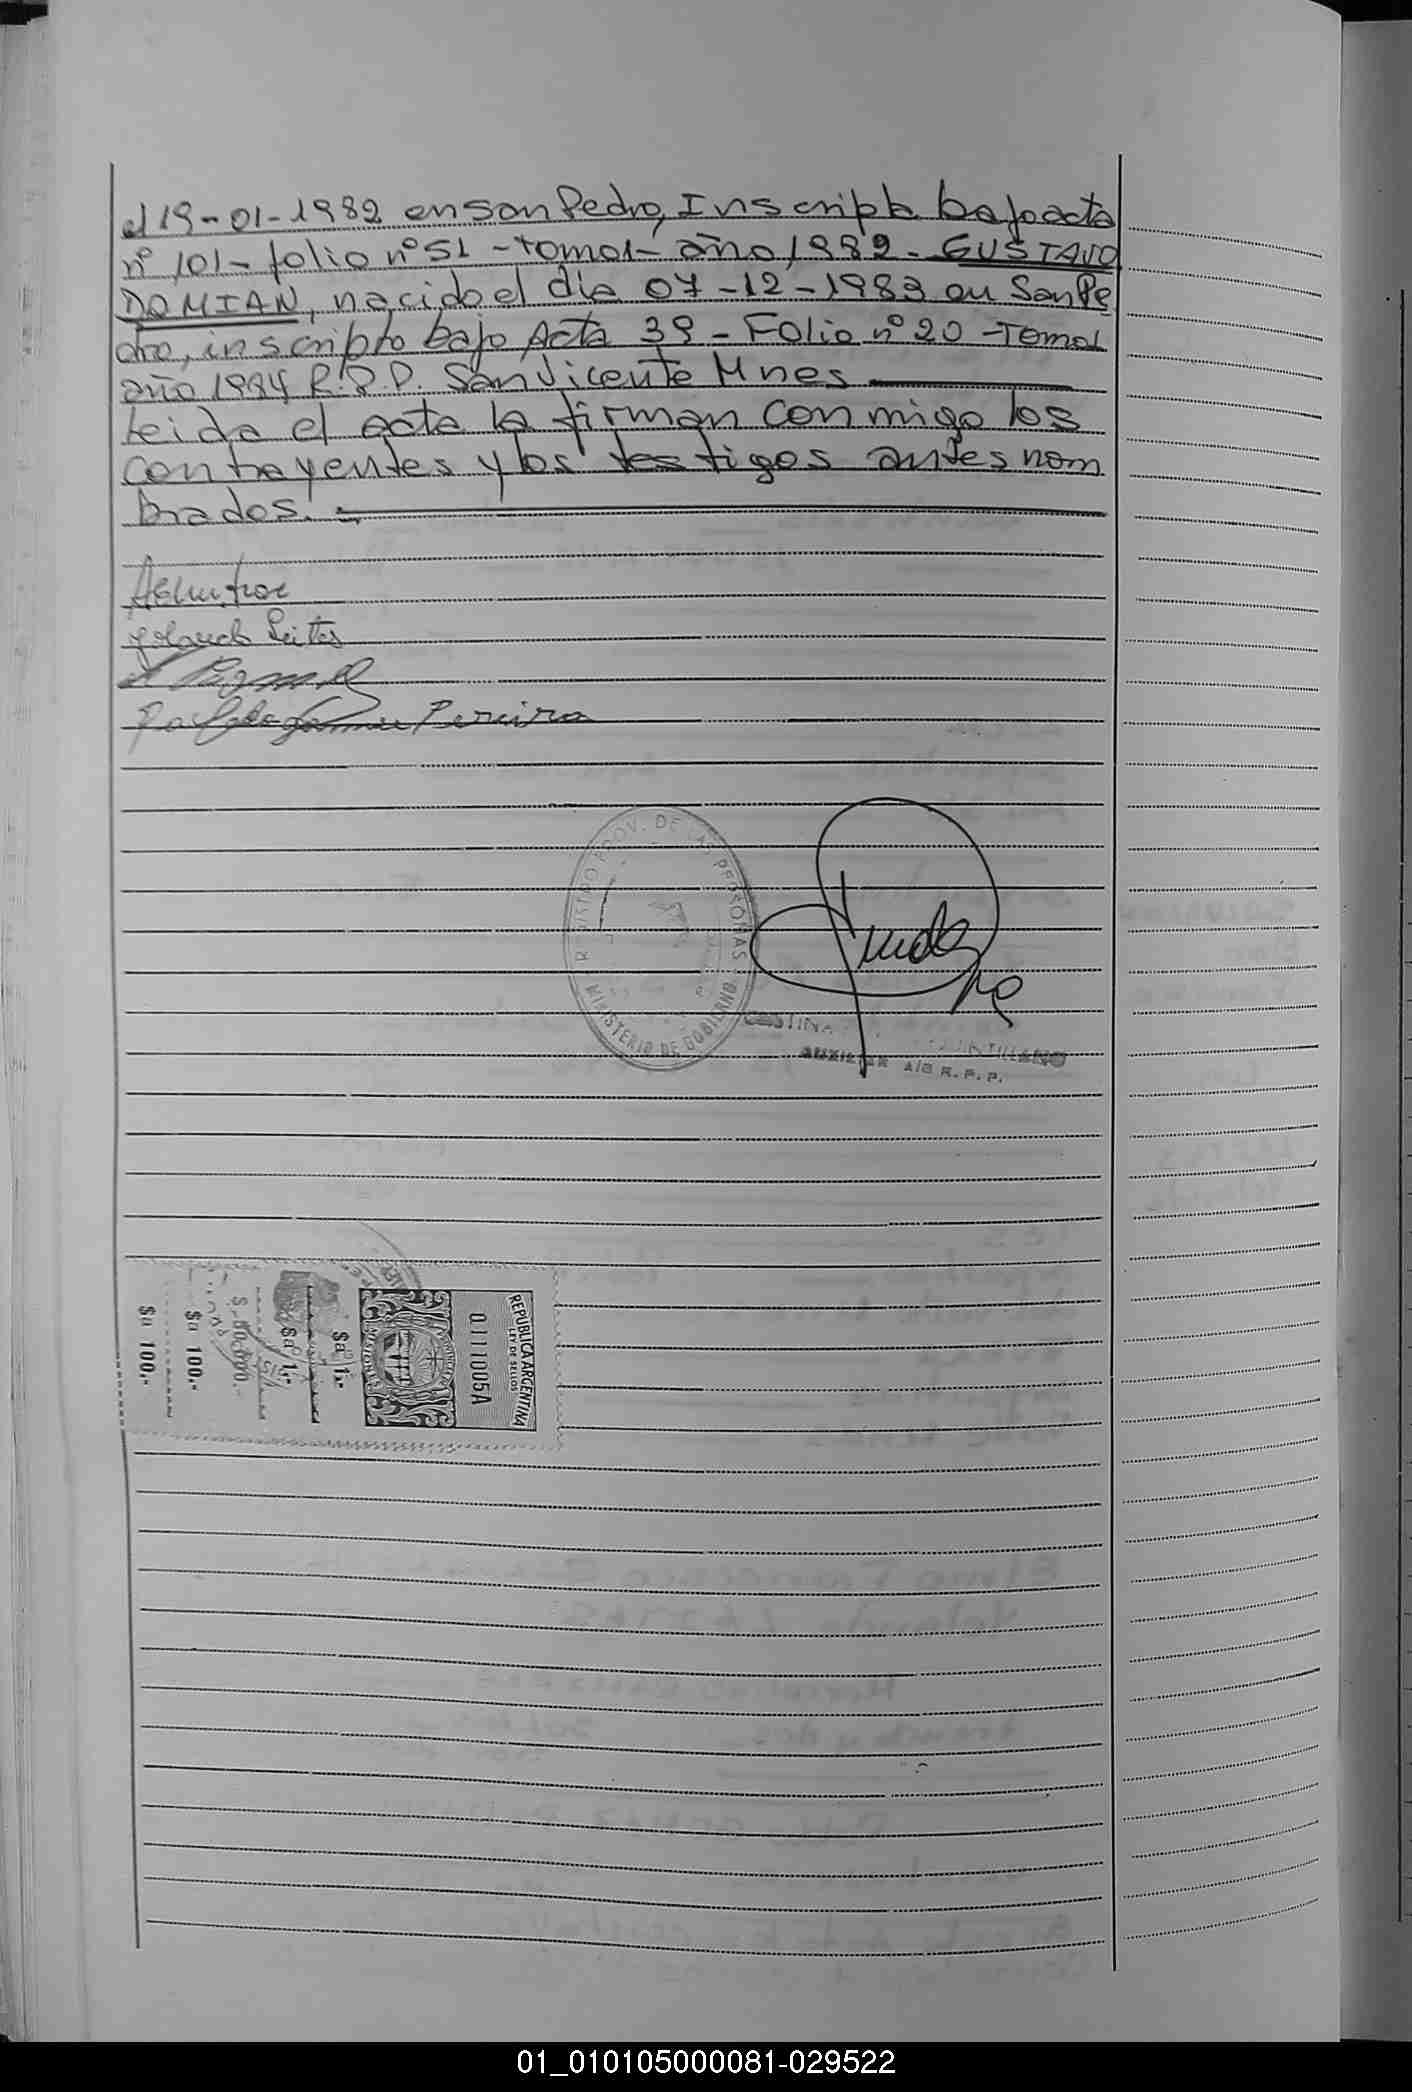 el 19-01-1982 en San Pedro, Inscripta bajo acta
nº 101- folio nº 51 - tomo 1- año 1982 - GUSTAVO
DAMIAN, nacido el día 07-12-1983 en San Pe
dro, inscripto bajo Acta 39 - Folio nº 20 - Tomo 1
año 1984 R.P.P. San Vicente Mnes
leida el acta la firman conmigo los
contrayentes y los testigos antes nom
brados.
Yolanda
Pereira
REGISTRO PROV. DE LAS PERSONAS
MINISTERIO DE GOBIERNO
AUXILIAR A/C R.P.P.
REPUBLICA ARGENTINA
LEY DE SELLOS
0111005A
MISIONES
$a 1.-
$a 1.-
$a 100.-
$a 100.-
01_010105000081-029522